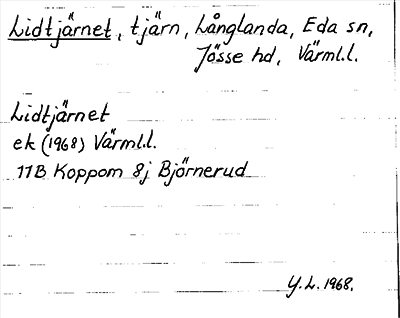 Lidtjärnet, tjärn, Långlanda, Eda sn,
Jösse hd, Värml.l.
Lidtjärnet
ek (1968) Värml.l.
11B Koppom 8j Björnerud
Y.L. 1968.